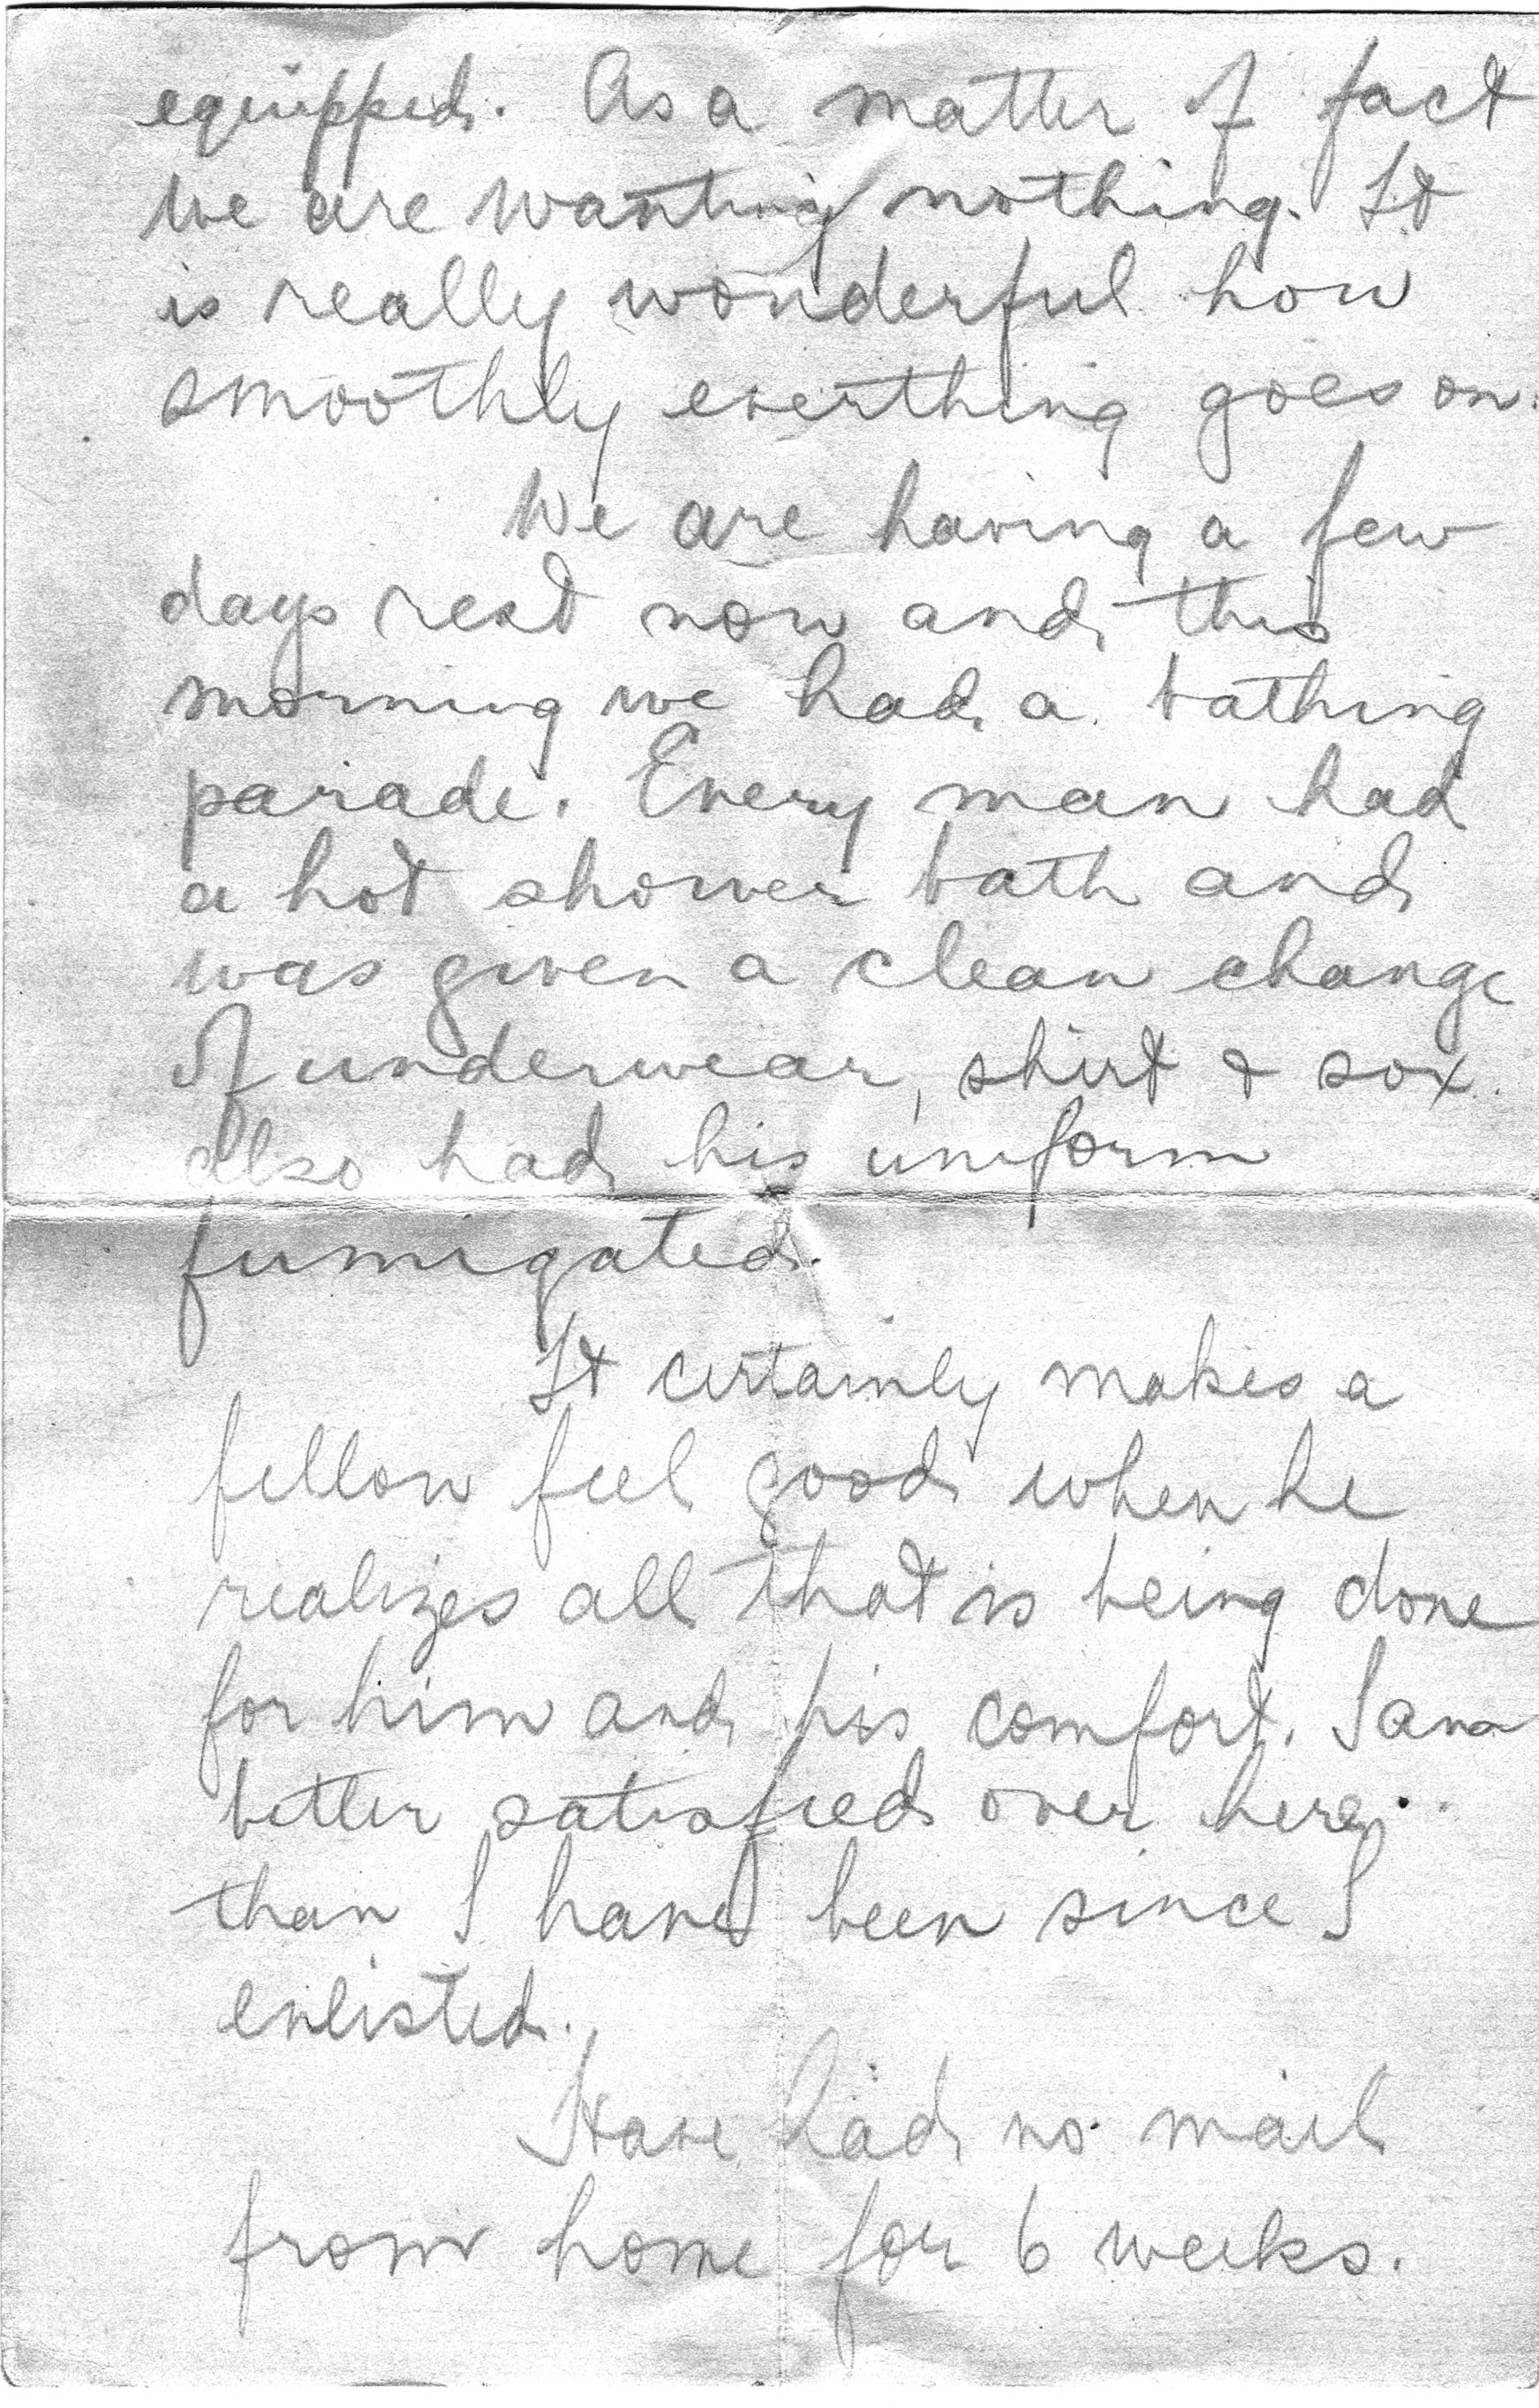 equipped. As a matter of fact
we are wanting nothing. It
is really wonderful how
smoothly everthing goes on.
We are having a few
days rest now and this
morning we had a bathing
parade. Every man had
a hot shower bath and
was given a clean change
of underwear, shirt & sox.
also had his uniform
fumigated.
It certainly makes a
fellow feel good when he
realizes all that is being done
for him and his comfort. I am
better satisfied over here
than I have been since I
enlisted.
Have had no mail
from home for 6 weeks.